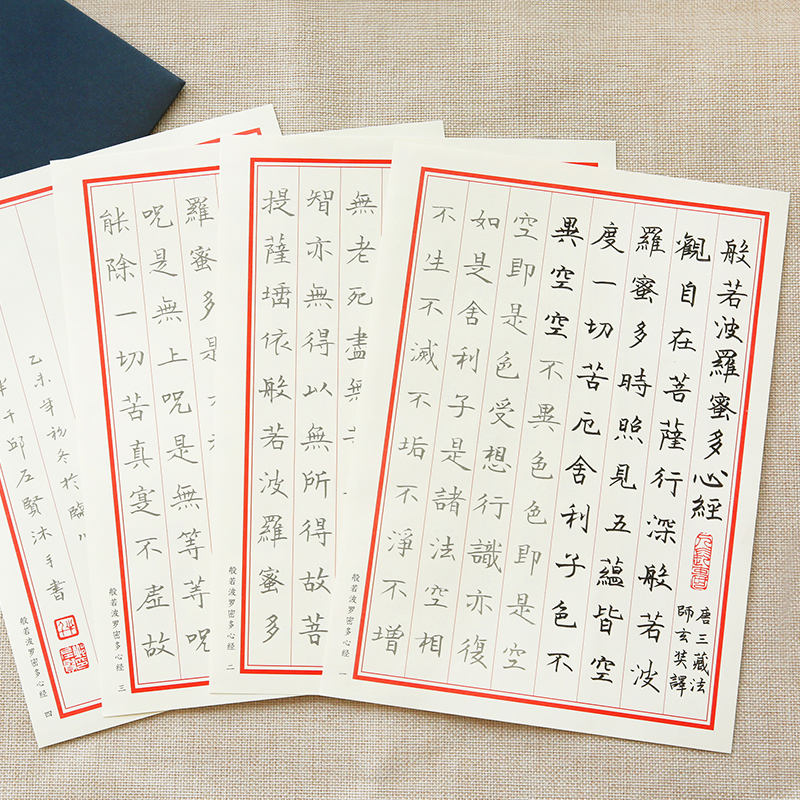 般若波羅蜜多心經
唐三藏法
師玄奘譯
觀自在菩薩行深般若波
羅蜜多時照見五蘊皆空
度一切苦厄舍利子色不
異空空不異色色即是空
空即是色受想行識亦復
如是舍利子是諸法空相
不生不滅不垢不淨不增
般若波罗密多心经 一
無老死盡無
智亦無得以無所得故菩
提薩埵依般若波羅蜜多
般若波罗密多心经 二
羅蜜多是
呪是無上呪是無等等呪
能除一切苦真實不虛故
般若波罗密多心经 三
乙未年初冬於臨
千邱石賢沐手書
般若波罗密多心经 四